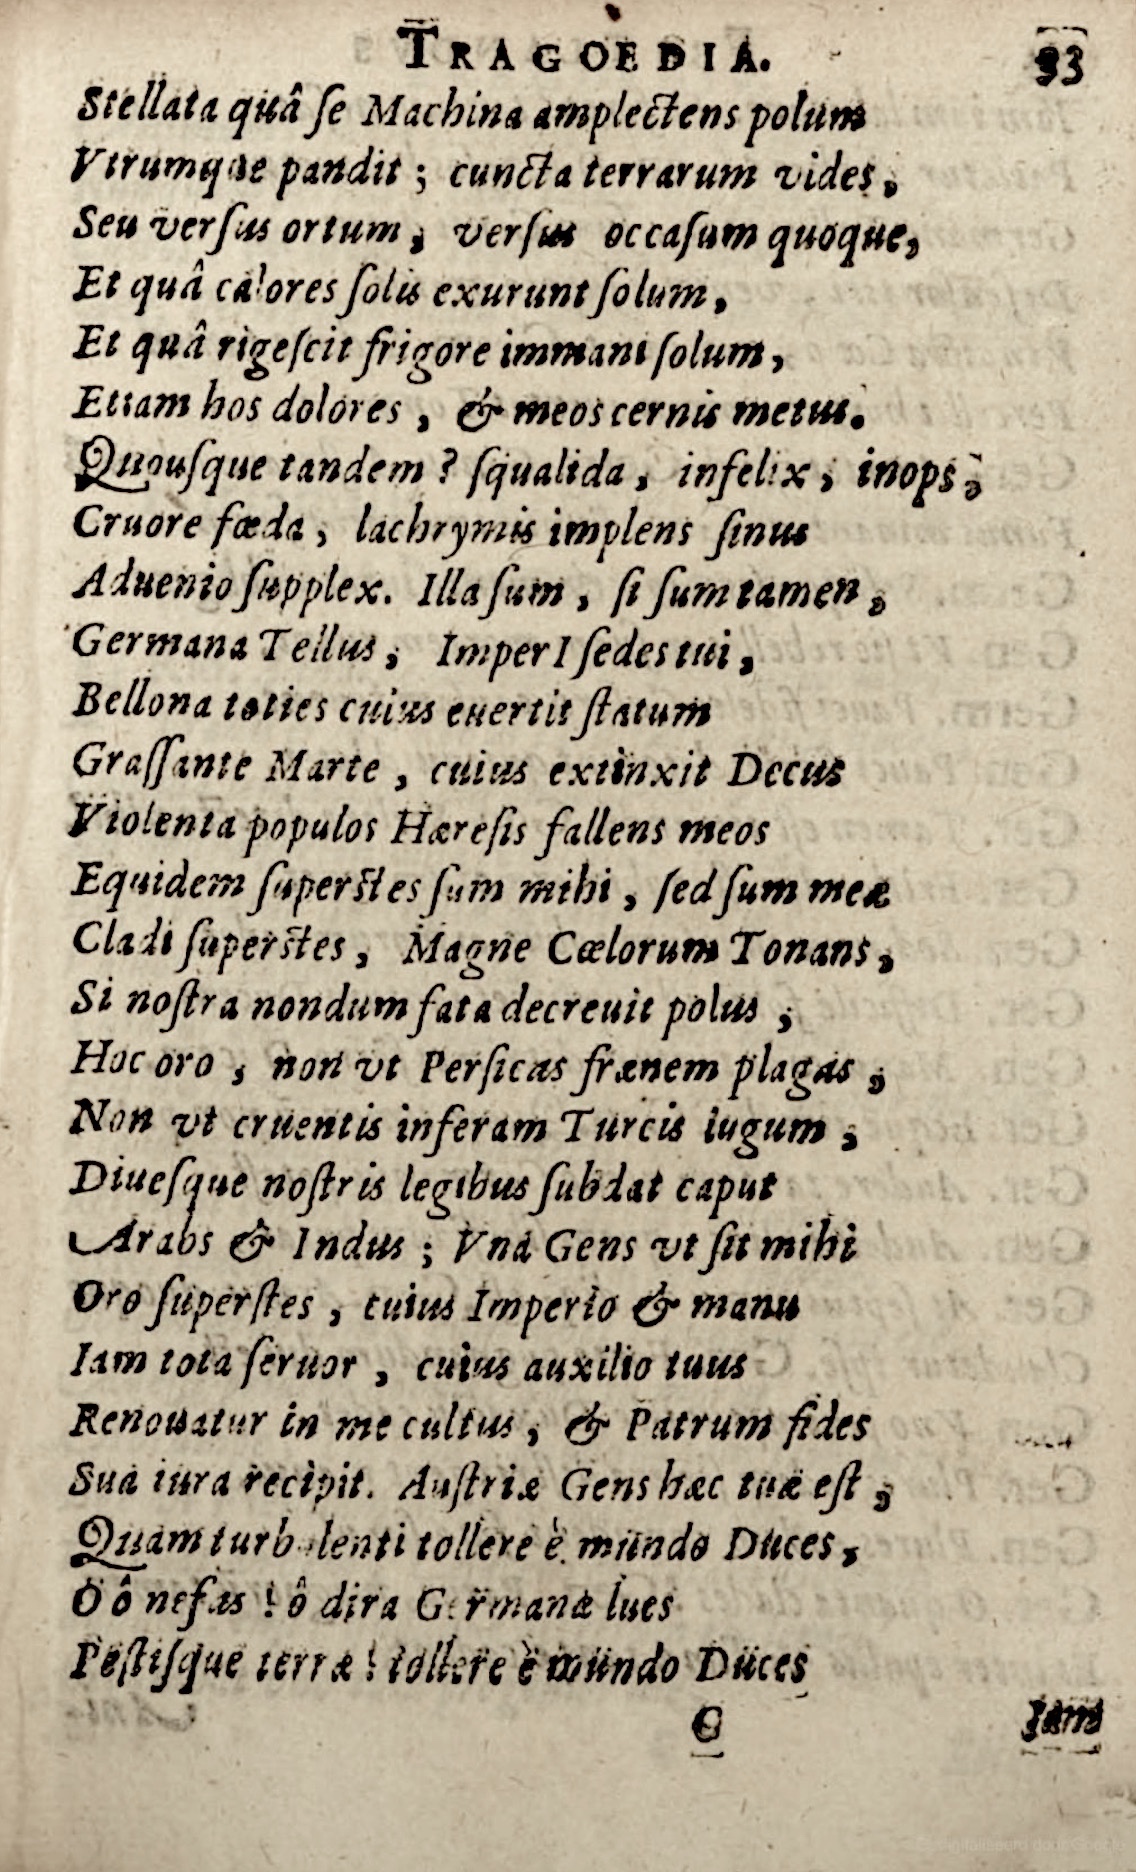 TRAGOEDIA. 33
Stellata quâ ſe Machina amplectens polum
Vtrumque pandit ; cuncta terrarum vides,
Seu verſus ortum, verſus occaſum quoque,
Et quâ calores ſolis exurunt ſolum,
Et quâ rigeſcit frigore immani ſolum,
Etiam hos dolores, & meos cernis metus.
Quouſque tandem ? ſqualida, infelix, inops,
Cruore fœda, lachrymis implens ſinus
Aduenio ſupplex. Illa ſum, ſi ſum tamen,
Germana Tellus, ImperI ſedes tui,
Bellona toties cuius euertit ſtatum
Graſſante Marte, cuius extinxit Decus
Violenta populos Hæreſis fallens meos
Equidem ſuperſtes ſum mihi, ſed ſum meæ
Cladi ſuperſtes, Magne Cœlorum Tonans,
Si noſtra nondum fata decreuit polus,
Hoc oro, non vt Perſicas frænem plagas,
Non vt cruentis inferam Turcis iugum,
Diueſque noſtris legibus ſubdat caput
Arabs & Indus ; Vna Gens vt ſit mihi
Oro ſuperſtes, cuius Imperio & manu
Iam tota ſeruor, cuius auxilio tuus
Renouatur in me cultus, & Patrum fides
Sua iura recipit. Auſtriæ Gens hæc tuæ eſt,
Quam turbulenti tollere è mundo Duces,
O ô nefas ! ô dira Germanæ lues
Peſtiſque terræ ! tollere è mundo Duces
C Iam